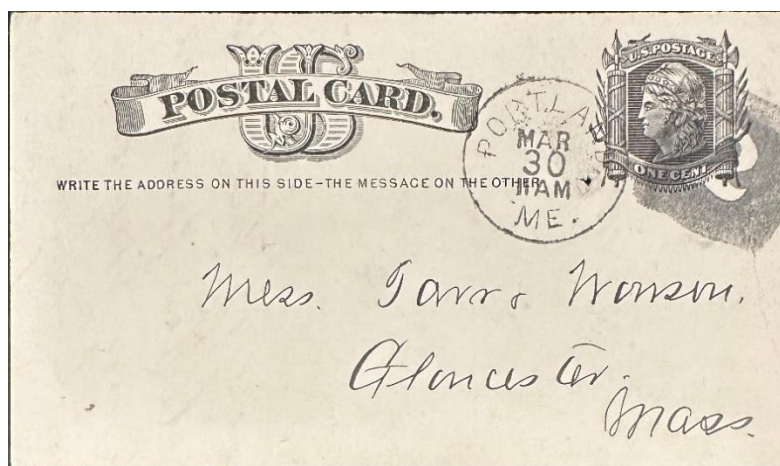 US
POSTAL CARD.
U.S. POSTAGE
ONE CENT
WRITE THE ADDRESS ON THIS SIDE-THE MESSAGE ON THE OTHER
PORTLAND
MAR
30
11 AM
ME.
Mess. Tarr & Wonson.
Gloucester.
Mass.